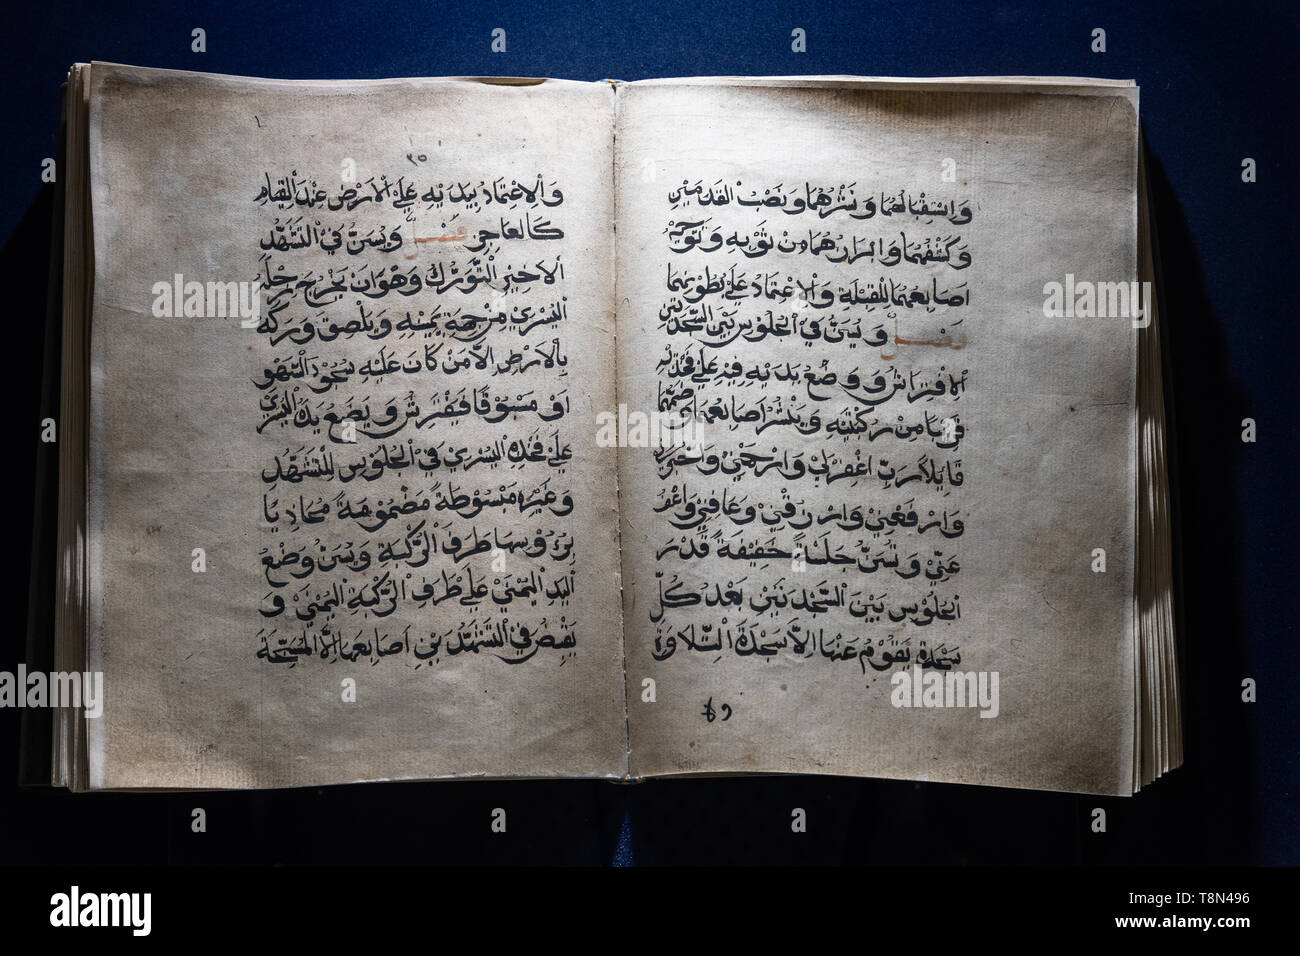 وَاسْتِقْبَالُهُمَا وَنَشْرُهُمَا وَنَصْبُ الْقَدَمَيْنِ
وَكَشْفُهُمَا وَإِبْرَازُهُمَا مِنْ ثَوْبِهِ وَتَوْجِيْهُ
اَصَابِعِهُمَا لِلْقِبْلَةِ وَالْاِعْتِمَادُ عَلَى بُطُوْنِهِمَا
فصل وَيُسَنُّ فِي الْجُلُوْسِ بَيْنَ السَّجْدَتَيْنِ
الْاِفْتِرَاشُ وَوَضْعُ يَدَيْهِ فِيْهِ عَلَى فَخِذَيْهِ
قَرِيْبًا مِنْ رُكْبَتَيْهِ وَيَنْشُرُ اَصَابِعَهُمَا وَضَمُّهُمَا
قَايِلًا رَبِّ اغْفِرْلِيْ وَارْحَمْنِيْ وَاجْبُرْنِيْ
وَارْفَعْنِيْ وَارْزُقْنِيْ وَعَافِنِيْ وَاعْفُ
عَنِّيْ وَتُسَنُّ جَلْسَةٌ خَفِيْفَةٌ قَدْرَ
الْجُلُوْسِ بَيْنَ السَّجْدَتَيْنِ بَعْدَ كُلِّ
سَجْدَةٍ يَقُوْمُ عَنْهَا اِلَّا سَجْدَةَ التِّلَاوَةِ
وَالْاِعْتِمَادُ بِيَدَيْهِ عَلَى الْاَرْضِ عِنْدَ الْقِيَامِ
كَالْعَاجِزِ فصل وَيُسَنُّ فِي التَّشَهُّدِ
الْاَخِيْرِ التَّوَرُّكُ وَهُوَ اَنْ يُخْرِجَ رِجْلَهُ
الْيُسْرَى مِنْ جِهَةِ يَمِيْنِهِ وَيُلْصِقَ وَرِكَهُ
بِالْاَرْضِ اِلَّا مَنْ كَانَ عَلَيْهِ سُجُوْدُ السَّهْوِ
اَوْ مَسْبُوْقًا فَيَفْتَرِشُ وَيَضَعُ يَدَهُ الْيُسْرَى
عَلَى فَخِذِهِ الْيُسْرَى فِي الْجُلُوْسِ لِلتَّشَهُّدِ
وَغَيْرِهِ مَبْسُوْطَةً مَضْمُوْمَةً مُحَاذِيًا
بِرُءُوْسِهَا طَرَفَ الرُّكْبَةِ وَيُسَنُّ وَضْعُ
الْيَدِ الْيُمْنَى عَلَى طَرَفِ الرُّكْبَةِ الْيُمْنَى وَ
يَقْبِضُ فِي التَّشَهُّدَيْنِ اَصَابِعَهَا اِلَّا الْمُسَبِّحَةَ
alamy
Image ID: T8N496
www.alamy.com